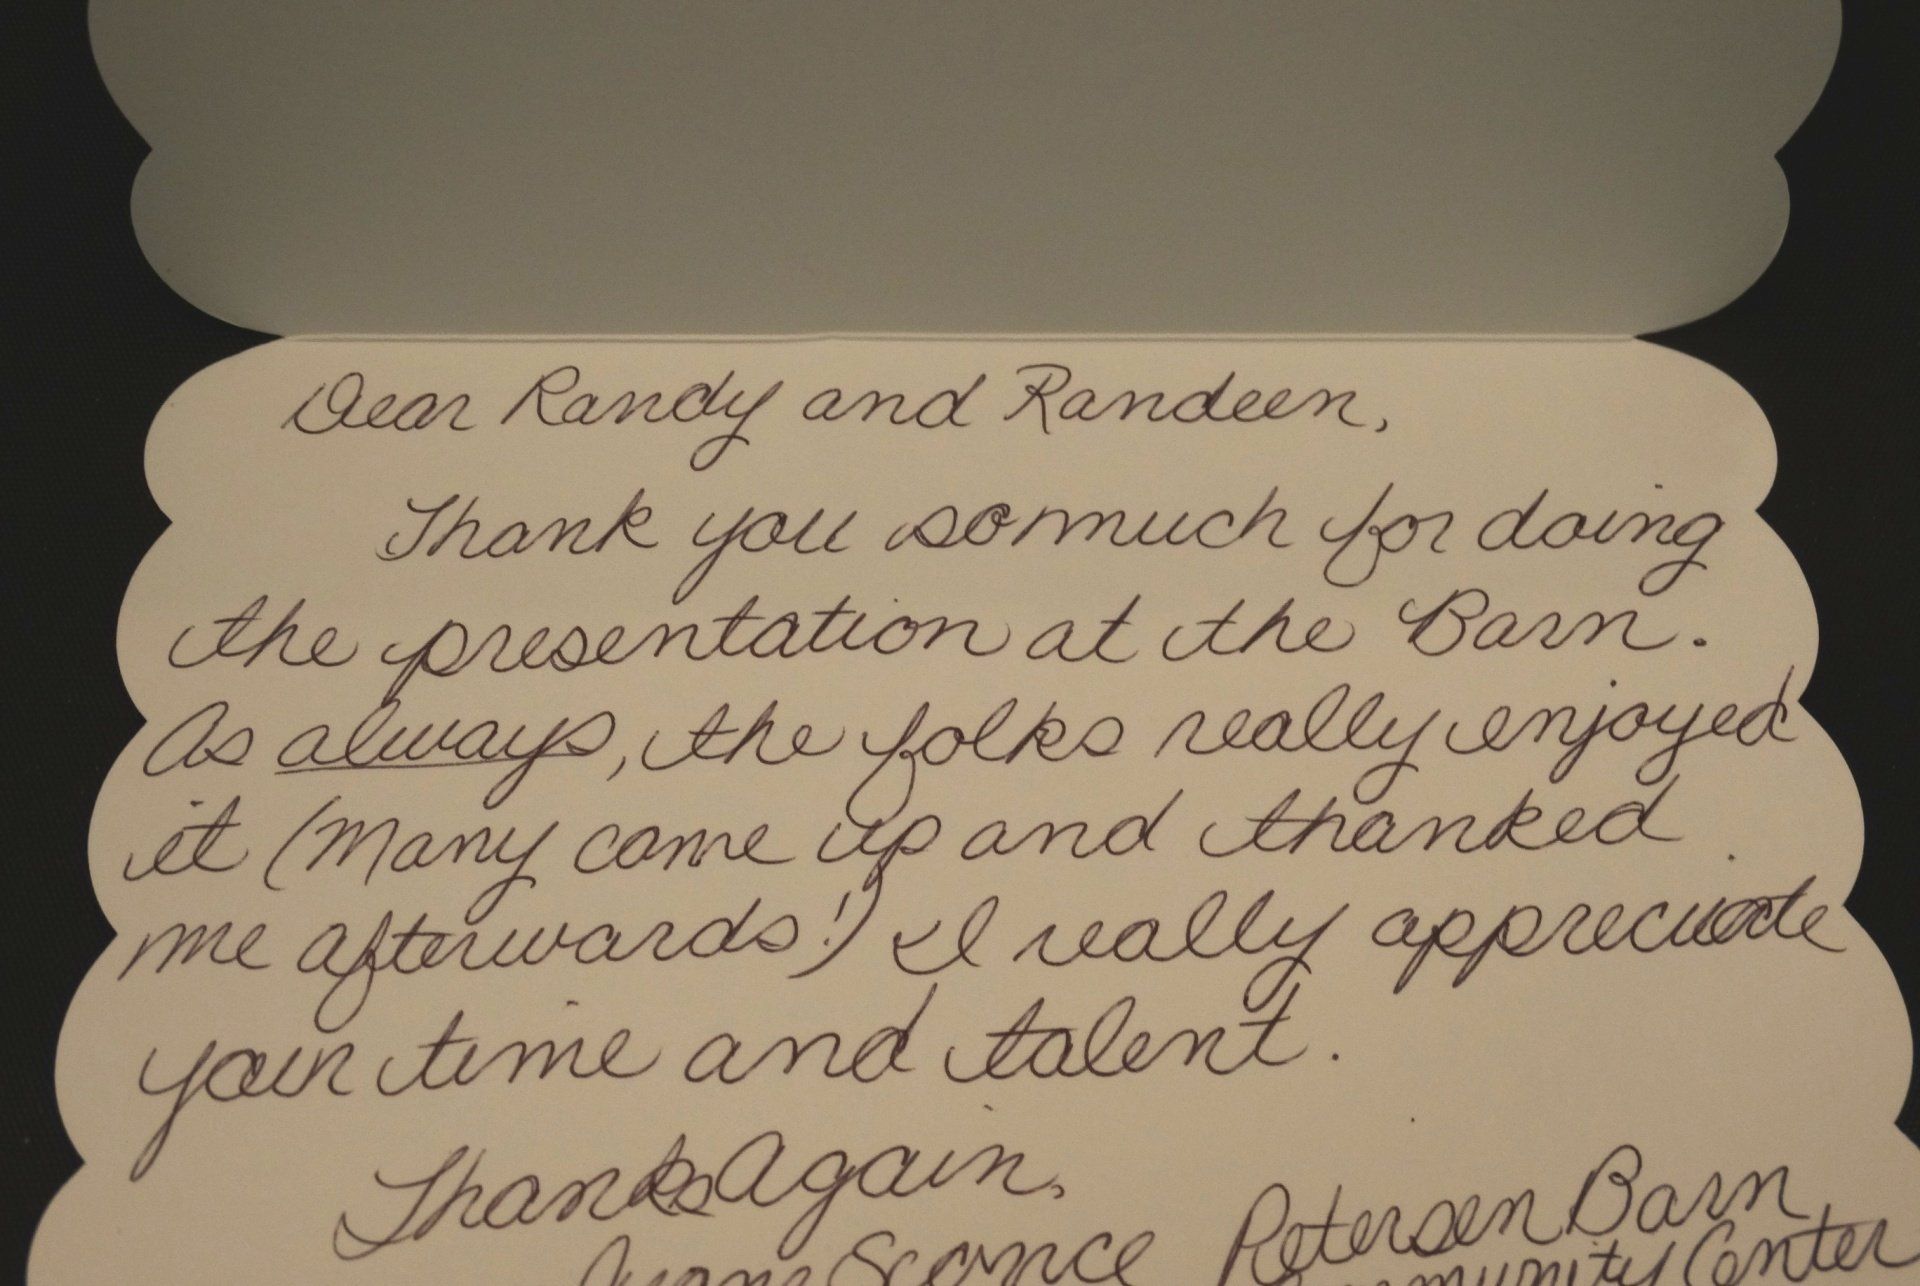 Dear Randy and Randeen,
Thank you so much for doing
the presentation at the Barn.
As always, the folks really enjoyed
it (Many come up and thanked
me afterwards!) I really appreciate
your time and talent.
Thanks Again,
Petersen Barn
Community Center